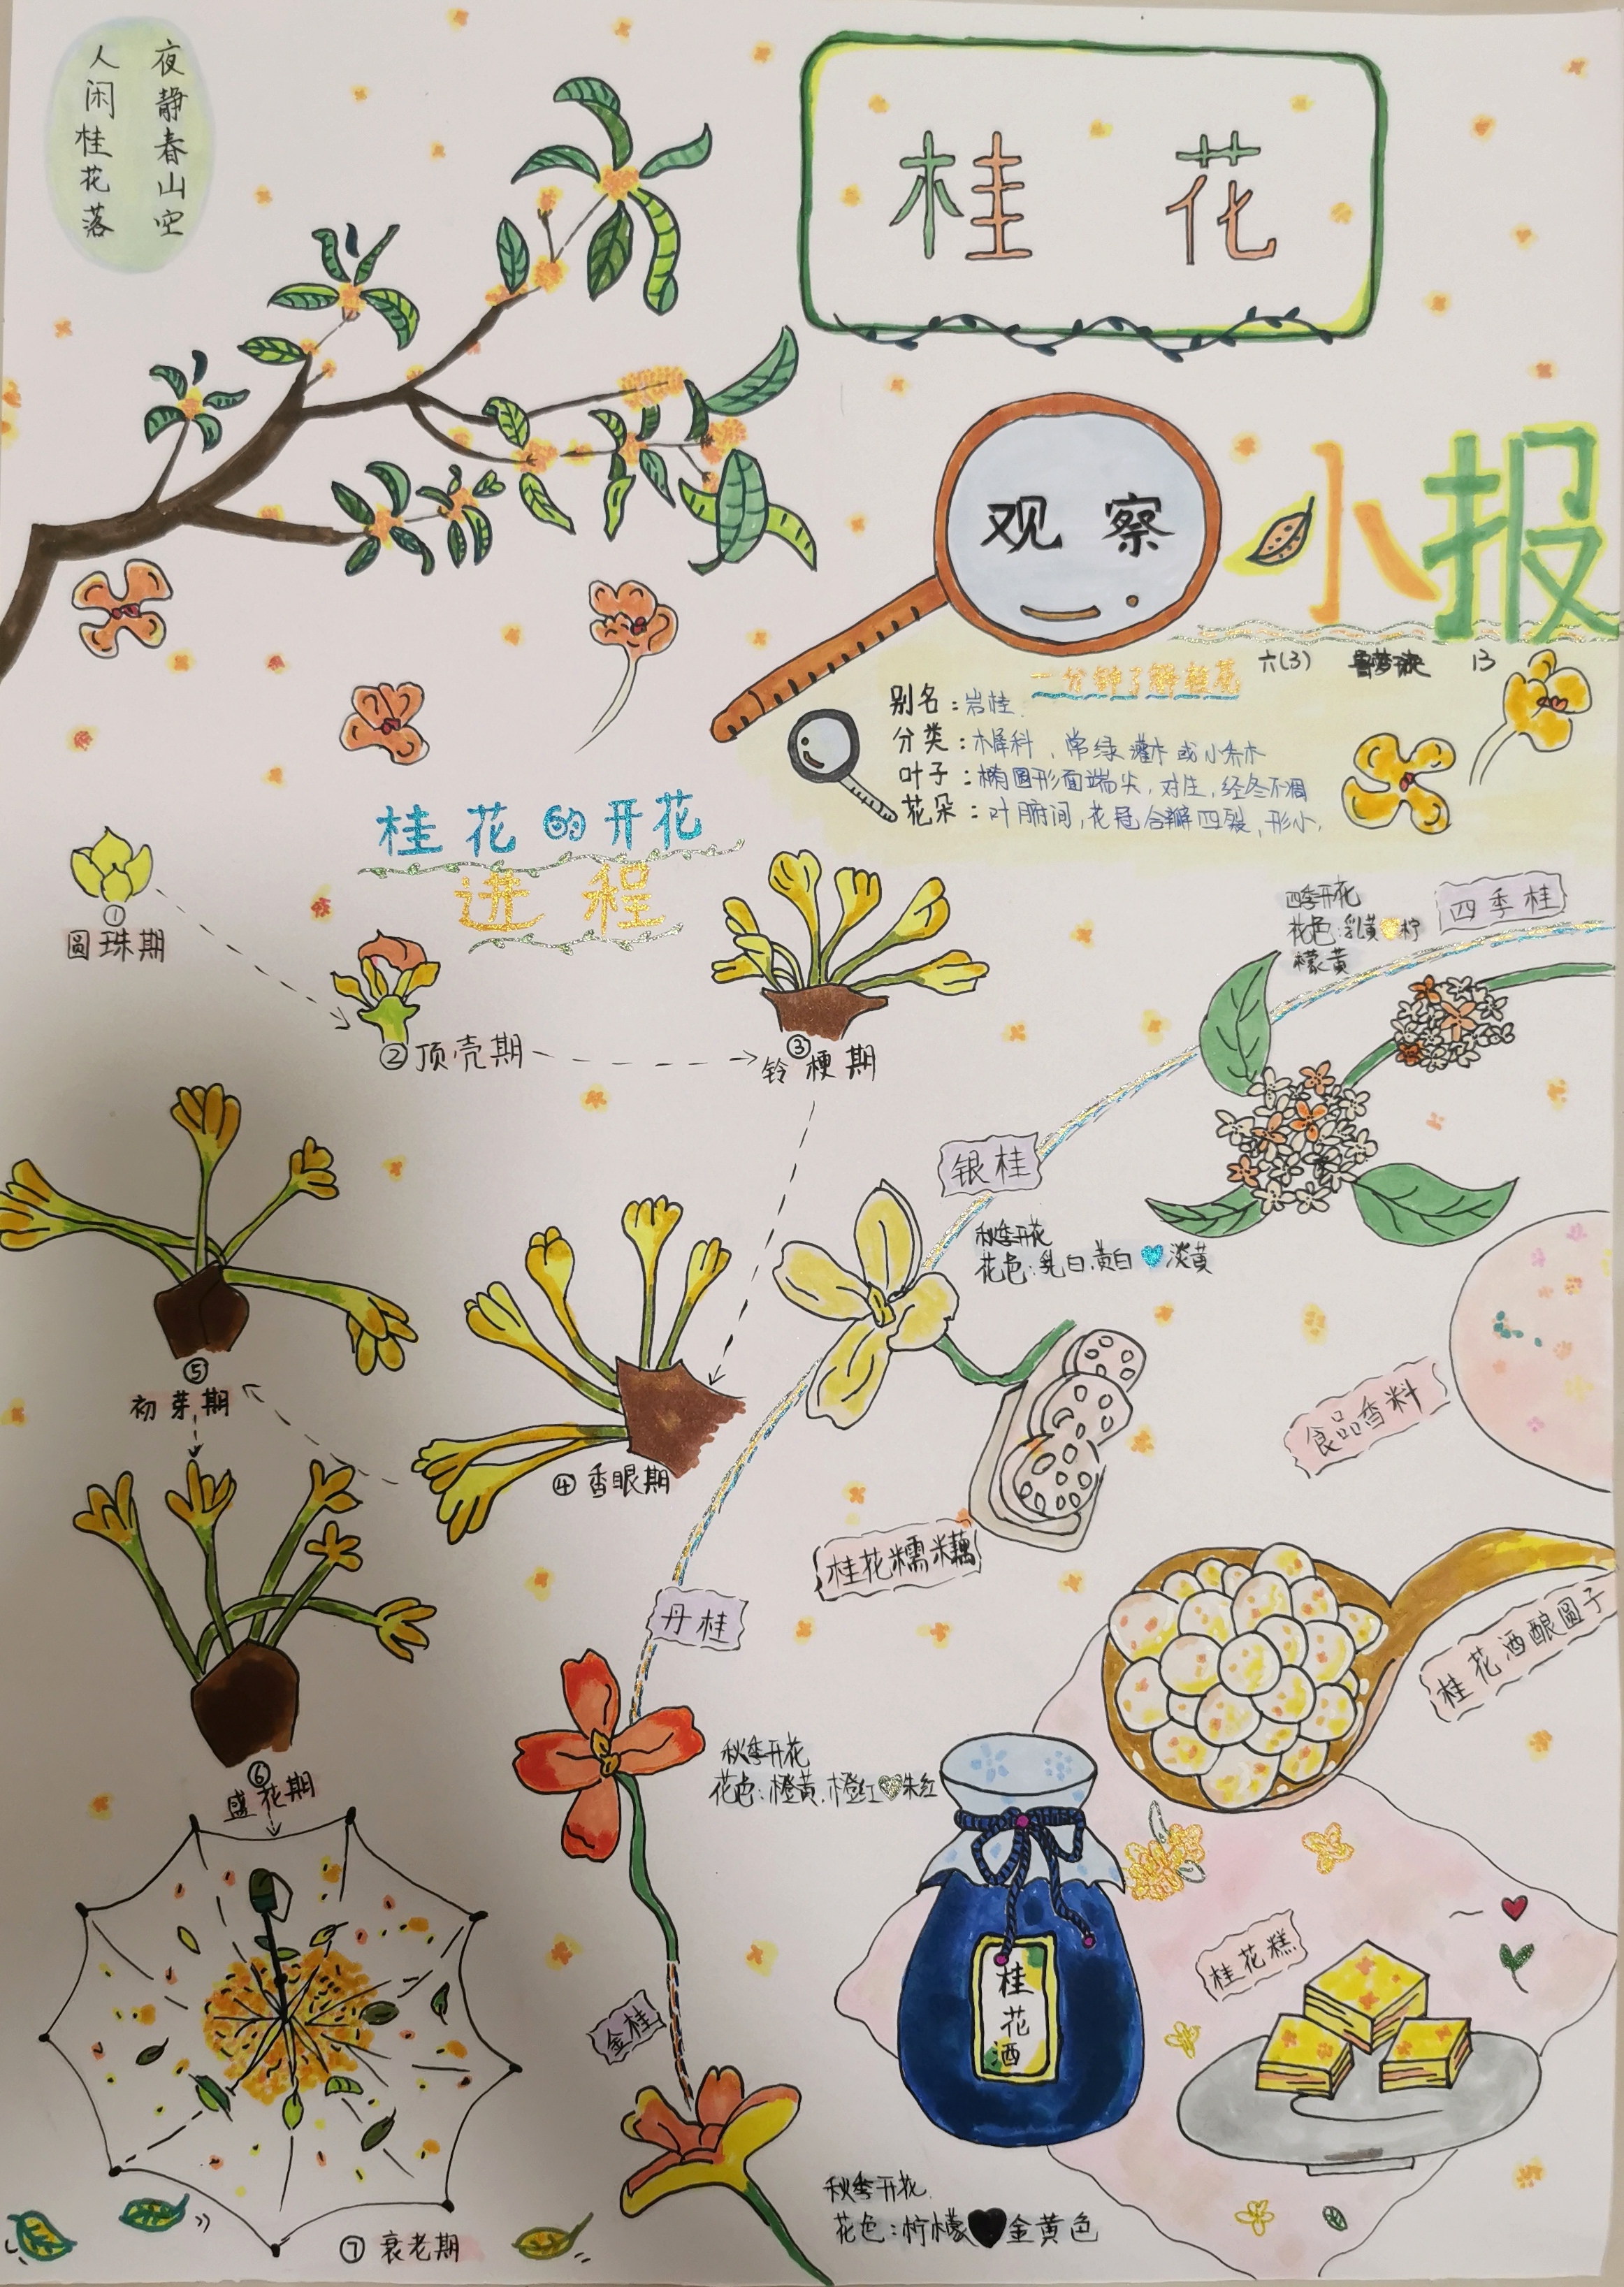 夜静春山空
人闲桂花落
桂 花
观察
小报
六(3) 13
一分钟了解桂花
别名：岩桂
分类：木犀科，常绿灌木或小乔木
叶子：椭圆形面端尖，对生，经冬不凋
花朵：叶腑间，花冠合瓣四裂，形小，
桂花的开花
进程
①
圆珠期
②顶壳期
③
铃梗期
④香眼期
⑤
初芽期
⑥
盛花期
⑦衰老期
四季桂
四季开花
花色：乳黄💛柠
檬黄
银桂
秋季开花
花色：乳白.黄白💙淡黄
丹桂
秋季开花
花色：橙黄.橙红💛朱红
金桂
秋季开花
花色：柠檬🖤金黄色
食品香料
桂花糯米藕
桂花酒酿圆子
桂花酒
桂花糕